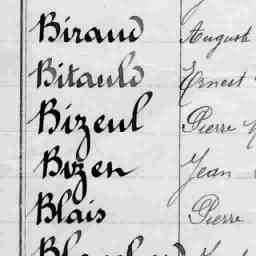 Biraud Auguste
Bitauld Ernest
Bizeul Pierre
Bizen Jean
Blais Pierre